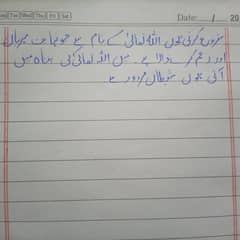 Mon Tue Wed Thu Fri Sat Date: / 20
شروع کرتی ہوں اللہ تعالیٰ کے نام سے جو نہایت مہربان
اور رحم کرنے والا ہے۔ میں اللہ تعالیٰ کی پناہ میں
آتی ہوں شیطان مردود سے